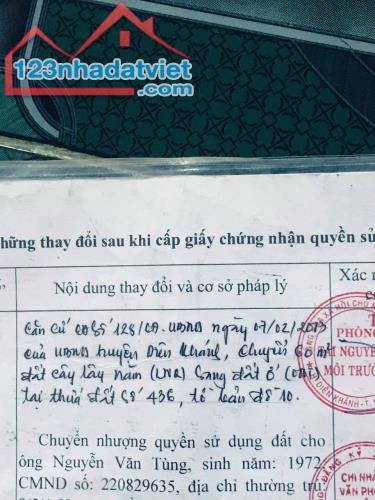 123nhadatviet
.com
hững thay đổi sau khi cấp giấy chứng nhận quyền sử
Nội dung thay đổi và cơ sở pháp lý
Xác n
Căn cứ CO Số 128/CO. UBND ngày 07/02/2013
của UBND huyện Diên Khánh, chuyển 60 m²
đất cây lâu năm (LNQ) sang đất ở (ONT)
tại thửa đất số 436, tờ bản đồ 10.
PHÒNG
ÀI NGUYÊN
MÔI TRƯỜ
Chuyển nhượng quyền sử dụng đất cho
ông Nguyễn Văn Tùng, sinh năm: 1972,
CMND số: 220829635, địa chỉ thường trú
CHI NHÁ
VĂN PHÒ